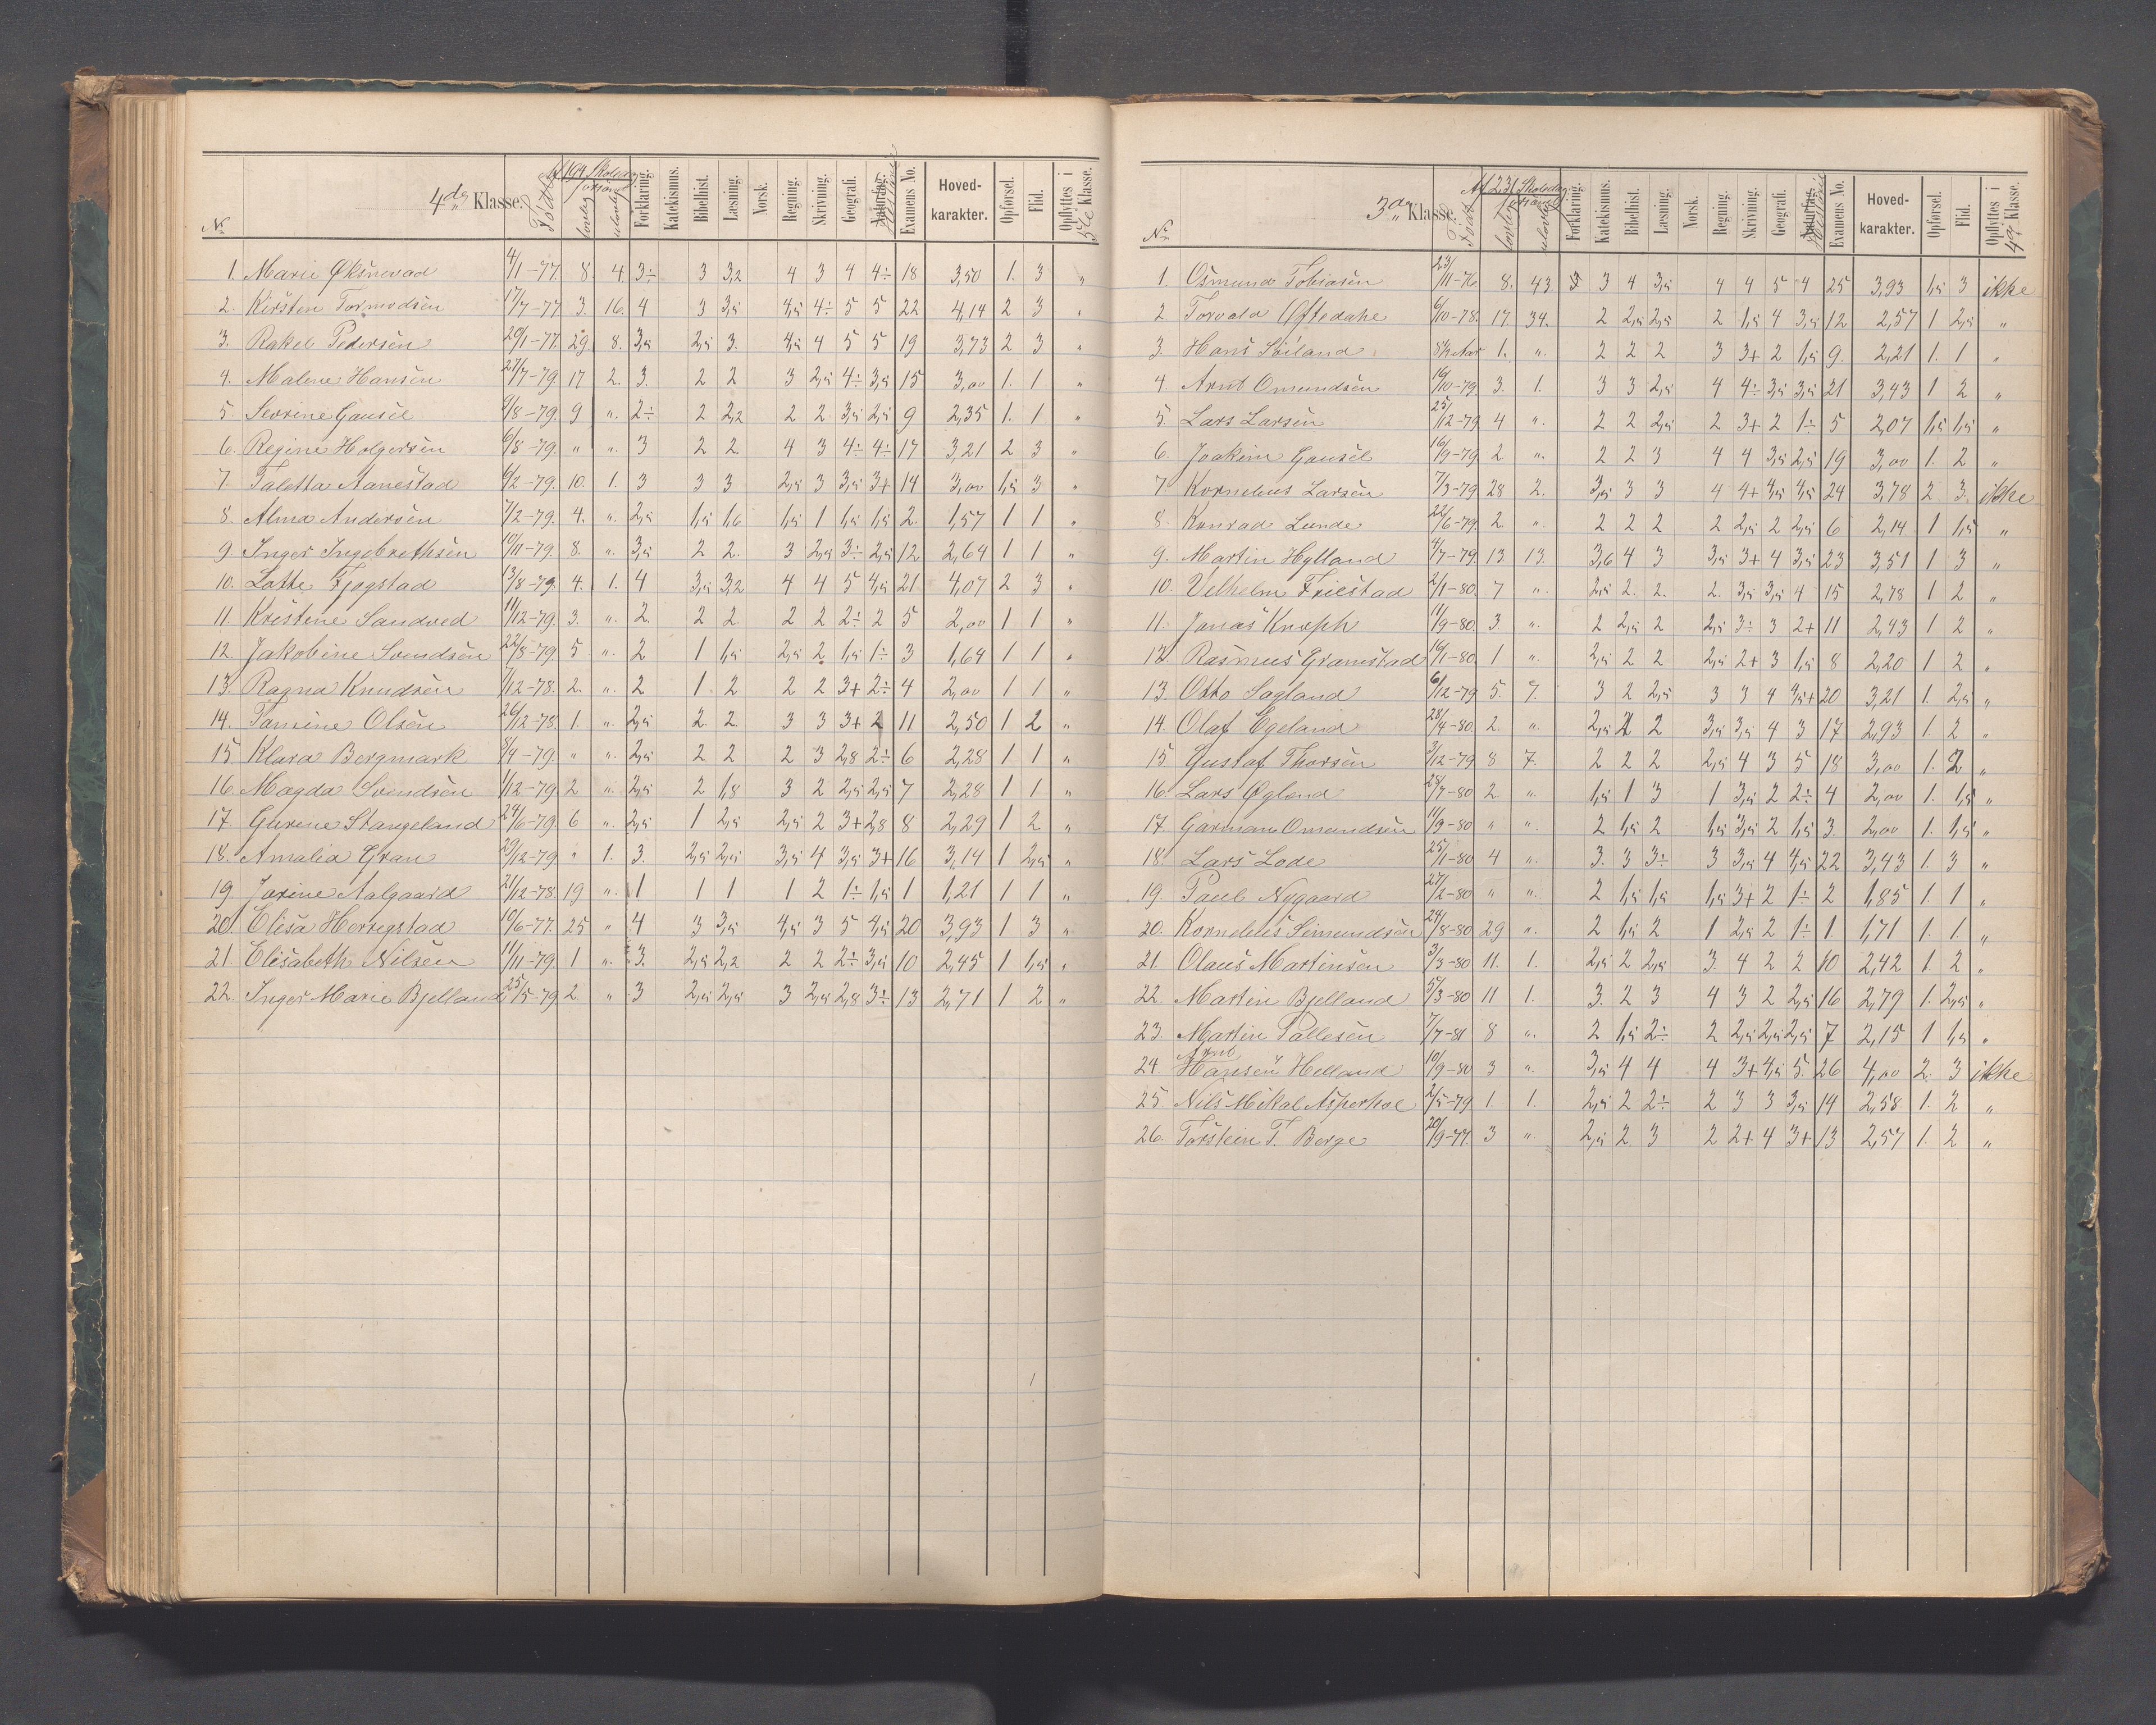 4de Klasse. Født Af 194 Skoledage forsømt lovlig ulovlig Forklaring. Katekismus. Bibelhist. Læsning. Norsk. Regning. Skrivning. Geografi. Naturfag. Historie Examens No. Hoved-karakter. Opførsel. Flid. Opflyttes i 5te Klasse.
No
1. Marie Øksnevad 4/1-77. 8. 4. 3÷ 3 3,2 4 3 4 4÷ 18 3,50 1. 3 "
2. Kirsten Tormodsen 17/7-77 3. 16. 4 3 3,5 4,5 4÷ 5 5 22 4,14 2 3 "
3. Rakel Pedersen 20/1-77. 29. 8. 3,5 2,5 3. 4,5 4 5 5 19 3,73 2 3 "
4. Malene Hansen 27/7-79. 17 2. 3. 2 2 3 2,5 4÷ 3,5 15 3,00 1. 1 "
5. Sevrine Gausel 9/8-79. 9 ". 2÷ 2 2,2 2 2 3,5 2,5 9 2,35 1. 1 "
6. Regine Holgersen 6/8-79. " ". 3 2 2 4 3 4÷ 4÷ 17 3,21 2 3 "
7. Taletta Aanestad 6/2-79. 10. 1. 3 3 3 2,5 3 3,5 3+ 14 3,00 1,5 3 "
8. Alma Andersen 7/2-79. 4. ". 2,5 1,5 1,6 1,5 1 1,5 1,5 2. 1,57 1 1 "
9. Inger Ingebrethsen 10/11-79. 8. ". 3,5 2 2. 3 2,5 3÷ 2,5 12 2,64 1 1 "
10. Lotte Fjogstad 13/8-79. 4. 1. 4 3,5 3,2 4 4 5 4,5 21. 4,07 2 3 "
11. Kristine Sandved 11/12-79. 3. ". 2. 2 2. 2 2 2÷ 2 5 2,00 1 1 "
12. Jakobine Svendsen 22/8-79 5 ". 2 1 1,5 2,5 2 1,5 1÷ 3 1,64 1 1 "
13. Ragna Knudsen 1/12-78. 2. ". 2 1 2 2 2 3+ 2÷ 4 2,00 1 1 "
14. Tomine Olsen 26/12-78. 1. ". 2,5 2. 2. 3 3 3+ 2 11 2,50 1 2 "
15. Klara Bergmark 8/4-79. " ". 2,5 2 2 2 3 2,8 2÷ 6 2,28 1 1 "
16. Magda Svendsen 1/12-79 2 ". 2,5 2 1,8 3 2 2,5 2,5 7 2,28 1 1. "
17. Gurine Stangeland 24/6-79. 6 ". 2,5 1 2,5 2,5 2 3+ 2,8 8 2,29 1 2 "
18. Amalia Gran 29/12-79. " 1. 3. 2,5 2,5 3,5 4 3,5 3+ 16 3,14 1 2,5 "
19 Jorine Aalgaard 21/12-78. 19 ". 1 1 1 1 2 1÷ 1,5 1 1,21 1 1 "
20. Elisa Herregstad 10/6-77. 25 " 4 3 3,5 4,5 3 5 4,5 20 3,93 1 3 "
21. Elisabeth Nilsen 11/11-79. 1 ". 3. 2,5 2,2 2 2 2÷ 3,5 10 2,45 1 1,5 "
22. Inger Marie Bjelland 25/5-79 2. " 3 2,5 2,5 3 2,5 2,8 3÷ 13 2,71 1 2 "
3die Klasse. Født Af 231 Skoledage forsømt lovlig ulovlig Forklaring. Katekismus. Bibelhist. Læsning. Norsk. Regning. Skrivning. Geografi. Naturfag. Historie Examens No. Hoved-karakter. Opførsel. Flid. Opflyttes i 4de Klasse.
No
1. Osmund Tobiasen 23/11-76. 8. 43 3 3 4 3,5 4 4 5 4 25 3,93 1,5 3 ikke
2. Torvald Oftedahl 6/10-78. 17 34. 2 2,5 2,5 2 1,5 4 3,5 12 2,57 1 2,5 "
3. Hans Soiland 8½ Aar 1. ". 2 2 2 3 3+ 2 1,5 9. 2,21 1. 1 "
4. Arnt Omundsen 19/10-79. 3. 1. 3 3 2,5 4 4÷ 3,5 3,5 21 3,43 1 2 "
5. Lars Larsen 25/12-79 4 ". 2 2 2,5 2 3+ 2 1÷ 5 2,07 1,5 1,5 "
6. Joakim Gausel 16/9-79 2 ". 2 2 3 4 4 3,5 2,5 19 3,00 1. 2 "
7. Kornelius Larsen 7/3-79 28 2. 3,5 3 3 4 4+ 4,5 4,5 24 3,78 2 3. ikke
8. Konrad Lunde 22/6-79. 2. ". 2 2 2 2 2,5 2 2,5 6 2,14 1 1,5 "
9. Martin Hylland 4/7-79. 13. 13. 3,6 4 3 3,5 3+ 4 3,5 23 3,51 1 3 "
10. Vilhelm Friestad 2/1-80. 7 ". 2,5 2. 2. 2. 3,5 3,5 4 15 2,78 1 2 "
11. Jonas Knoph 11/9-80. 3. ". 2 2,5 2 2,5 3÷ 3 2+ 11 2,43 1 2 "
12. Rasmus Gramstad 16/1-80. 1 ". 2,5 2 2 2,5 2+ 3 1,5 8 2,20 1 2 "
13. Otto Sagland 6/12-79 5. 7. 3 2 2,5 3 3 4 4,5+ 20 3,21 1. 2,5 "
14. Olaf Egeland 28/4-80. 2. ". 2,5 2 2 3,5 3,5 4 3 17 2,93 1. 2 "
15. Gustaf Thorsen 3/12-79 8 7. 2 2 2 2,5 4 3 5 18 3,00 1. 2 "
16. Lars Øglend 28/7-80 2. ". 1,5 1 3 1 3,5 2 2÷ 4 2,00 1. 1,5 "
17. Garman Omundsen 11/9-80 " ". 2 1,5 2 1,5 3,5 2 1,5 3. 2,00 1. 1,5 "
18. Lars Lode 25/1-80 4 ". 3. 3 3÷ 3 3,5 4 4,5 22 3,43 1. 3 "
19. Paul Nygaard 27/2-80 " ". 2 1,5 1,5 1,5 3+ 2 1÷ 2 1,85 1. 1 "
20. Kornelius Simundsen 24/8-80 29 ". 2 1,5 2 1 2,5 2 1÷ 1 1,71 1. 1. "
21. Olaus Martinsen 3/3-80 11. 1. 2,5 2 2,5 3. 4 2 2 10 2,42 1. 2 "
22. Martin Bjelland 5/3-80 11 1. 3. 2 3 4 3 2 2,5 16 2,79 1. 2,5 "
23. Martin Pallesen 7/7-81 8 ". 2 1,5 2÷ 2 2,5 2,5 2,5 7 2,15 1 1,5 "
24. Hansen Arnt Helland 10/9-80 3 ". 3,5 4 4 4 3+ 4,5 5. 26 4,00 2. 3 ikke
25. Nils Mikal Asperhol 2/5-79 1. 1. 2,5 2 2÷ 2 3 3 3,5 14 2,58 1. 2 "
26. Torstein T. Berge 20/9-77. 3 ". 2,5 2 3 2 2+ 4 3+ 13 2,57 1. 2 "